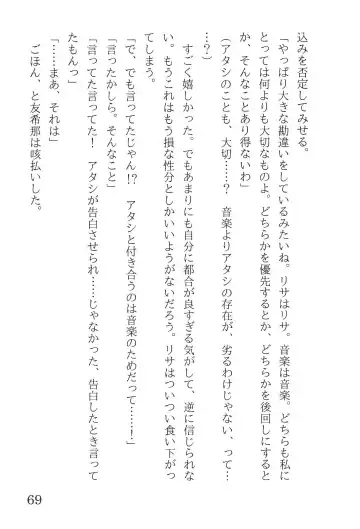 込みを否定してみせる。
「やっぱり大きな勘違いをしているみたいね。リサはリサ。音楽は音楽。どちらも私に
とっては何よりも大切なものよ。どちらかを優先するとか、どちらかを後回しにすると
か、そんなことあり得ないわ」
（アタシのことも、大切……？　音楽よりアタシの存在が、劣るわけじゃない、って…
…？）
すごく嬉しかった。でもあまりにも自分に都合が良すぎる気がして、逆に信じられな
い。もうこれはもう損な性分としかいいようがないだろう。リサはついつい食い下がっ
てしまう。
「で、でも言ってたじゃん!?　アタシと付き合うのは音楽のためだって……！」
「言ったかしら。そんなこと」
「言ってた言ってた！　アタシが告白させられ……じゃなかった、告白したとき言って
たもんっ」
「……まあ、それは」
ごほん、と友希那は咳払いした。
69